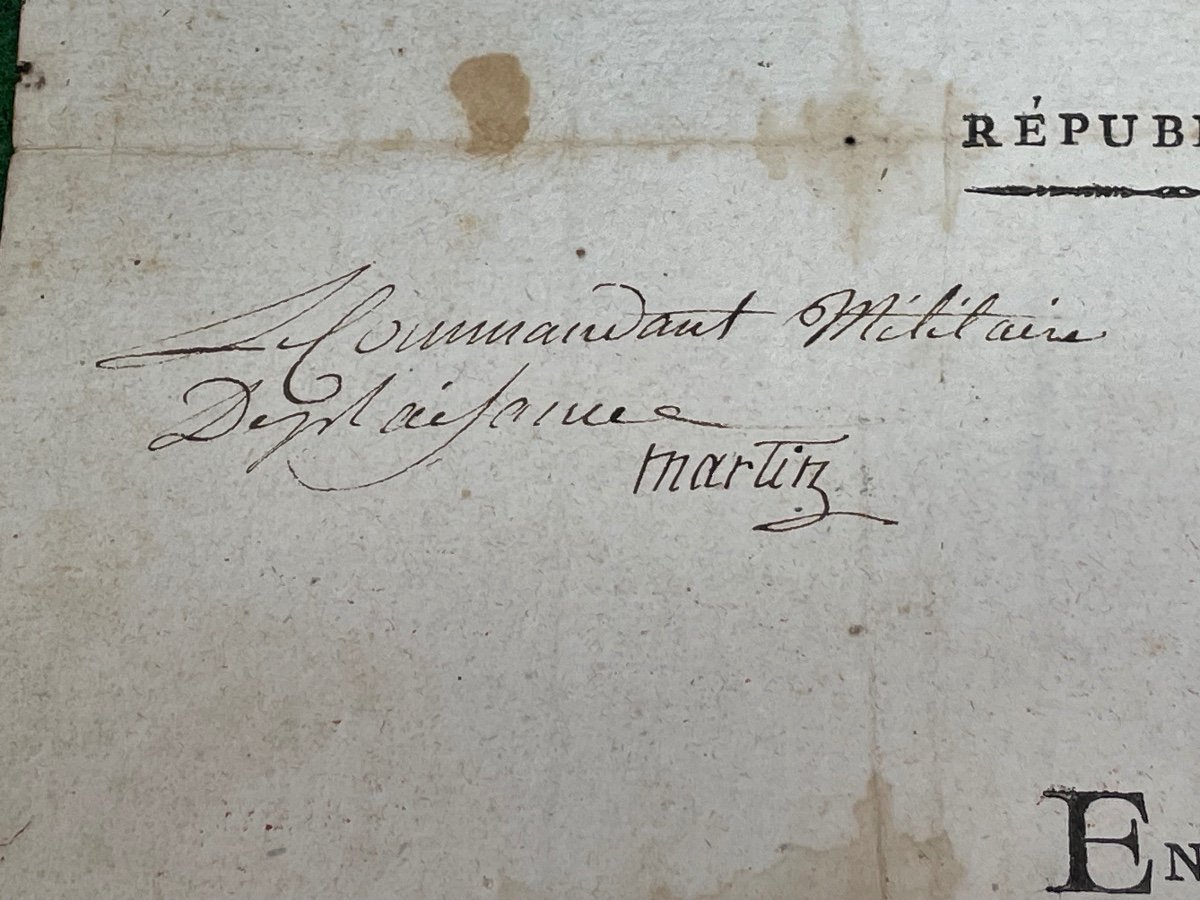 RÉPUB
Le Commandant Militaire
Deplaisance
martin
EN